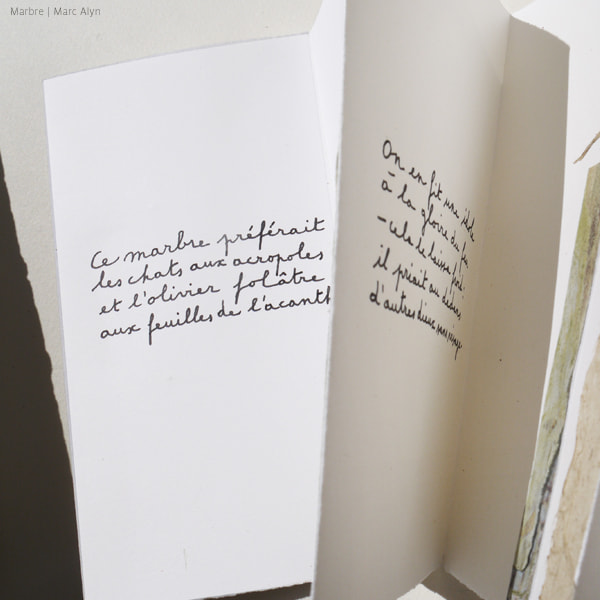 Marbre | Marc Alyn
Ce marbre préférait
les chats aux acropoles
et l'olivier folâtre
aux feuilles de l'acanth
On en fit une idol
à la gloire du feu
- cela le laissa froid :
il priait au dedans
d'autres dieux, sans visage